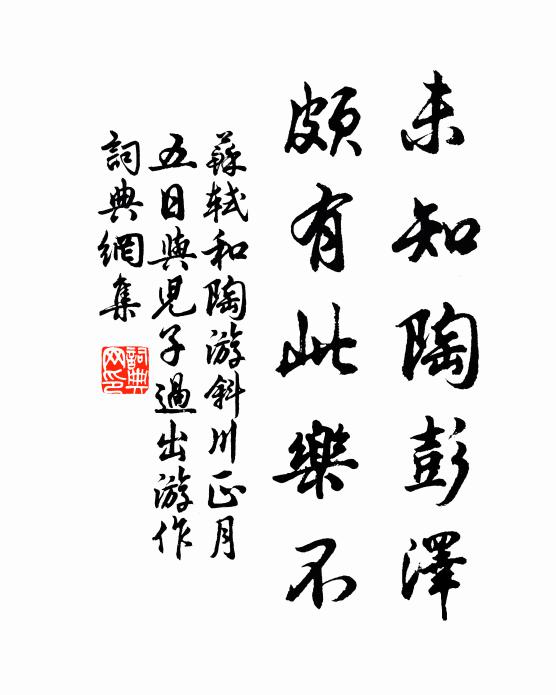 未知陶彭澤
頗有此樂不
蘇軾和陶游斜川正月
五日與兒子過出游作
詞典網集
詞典網印